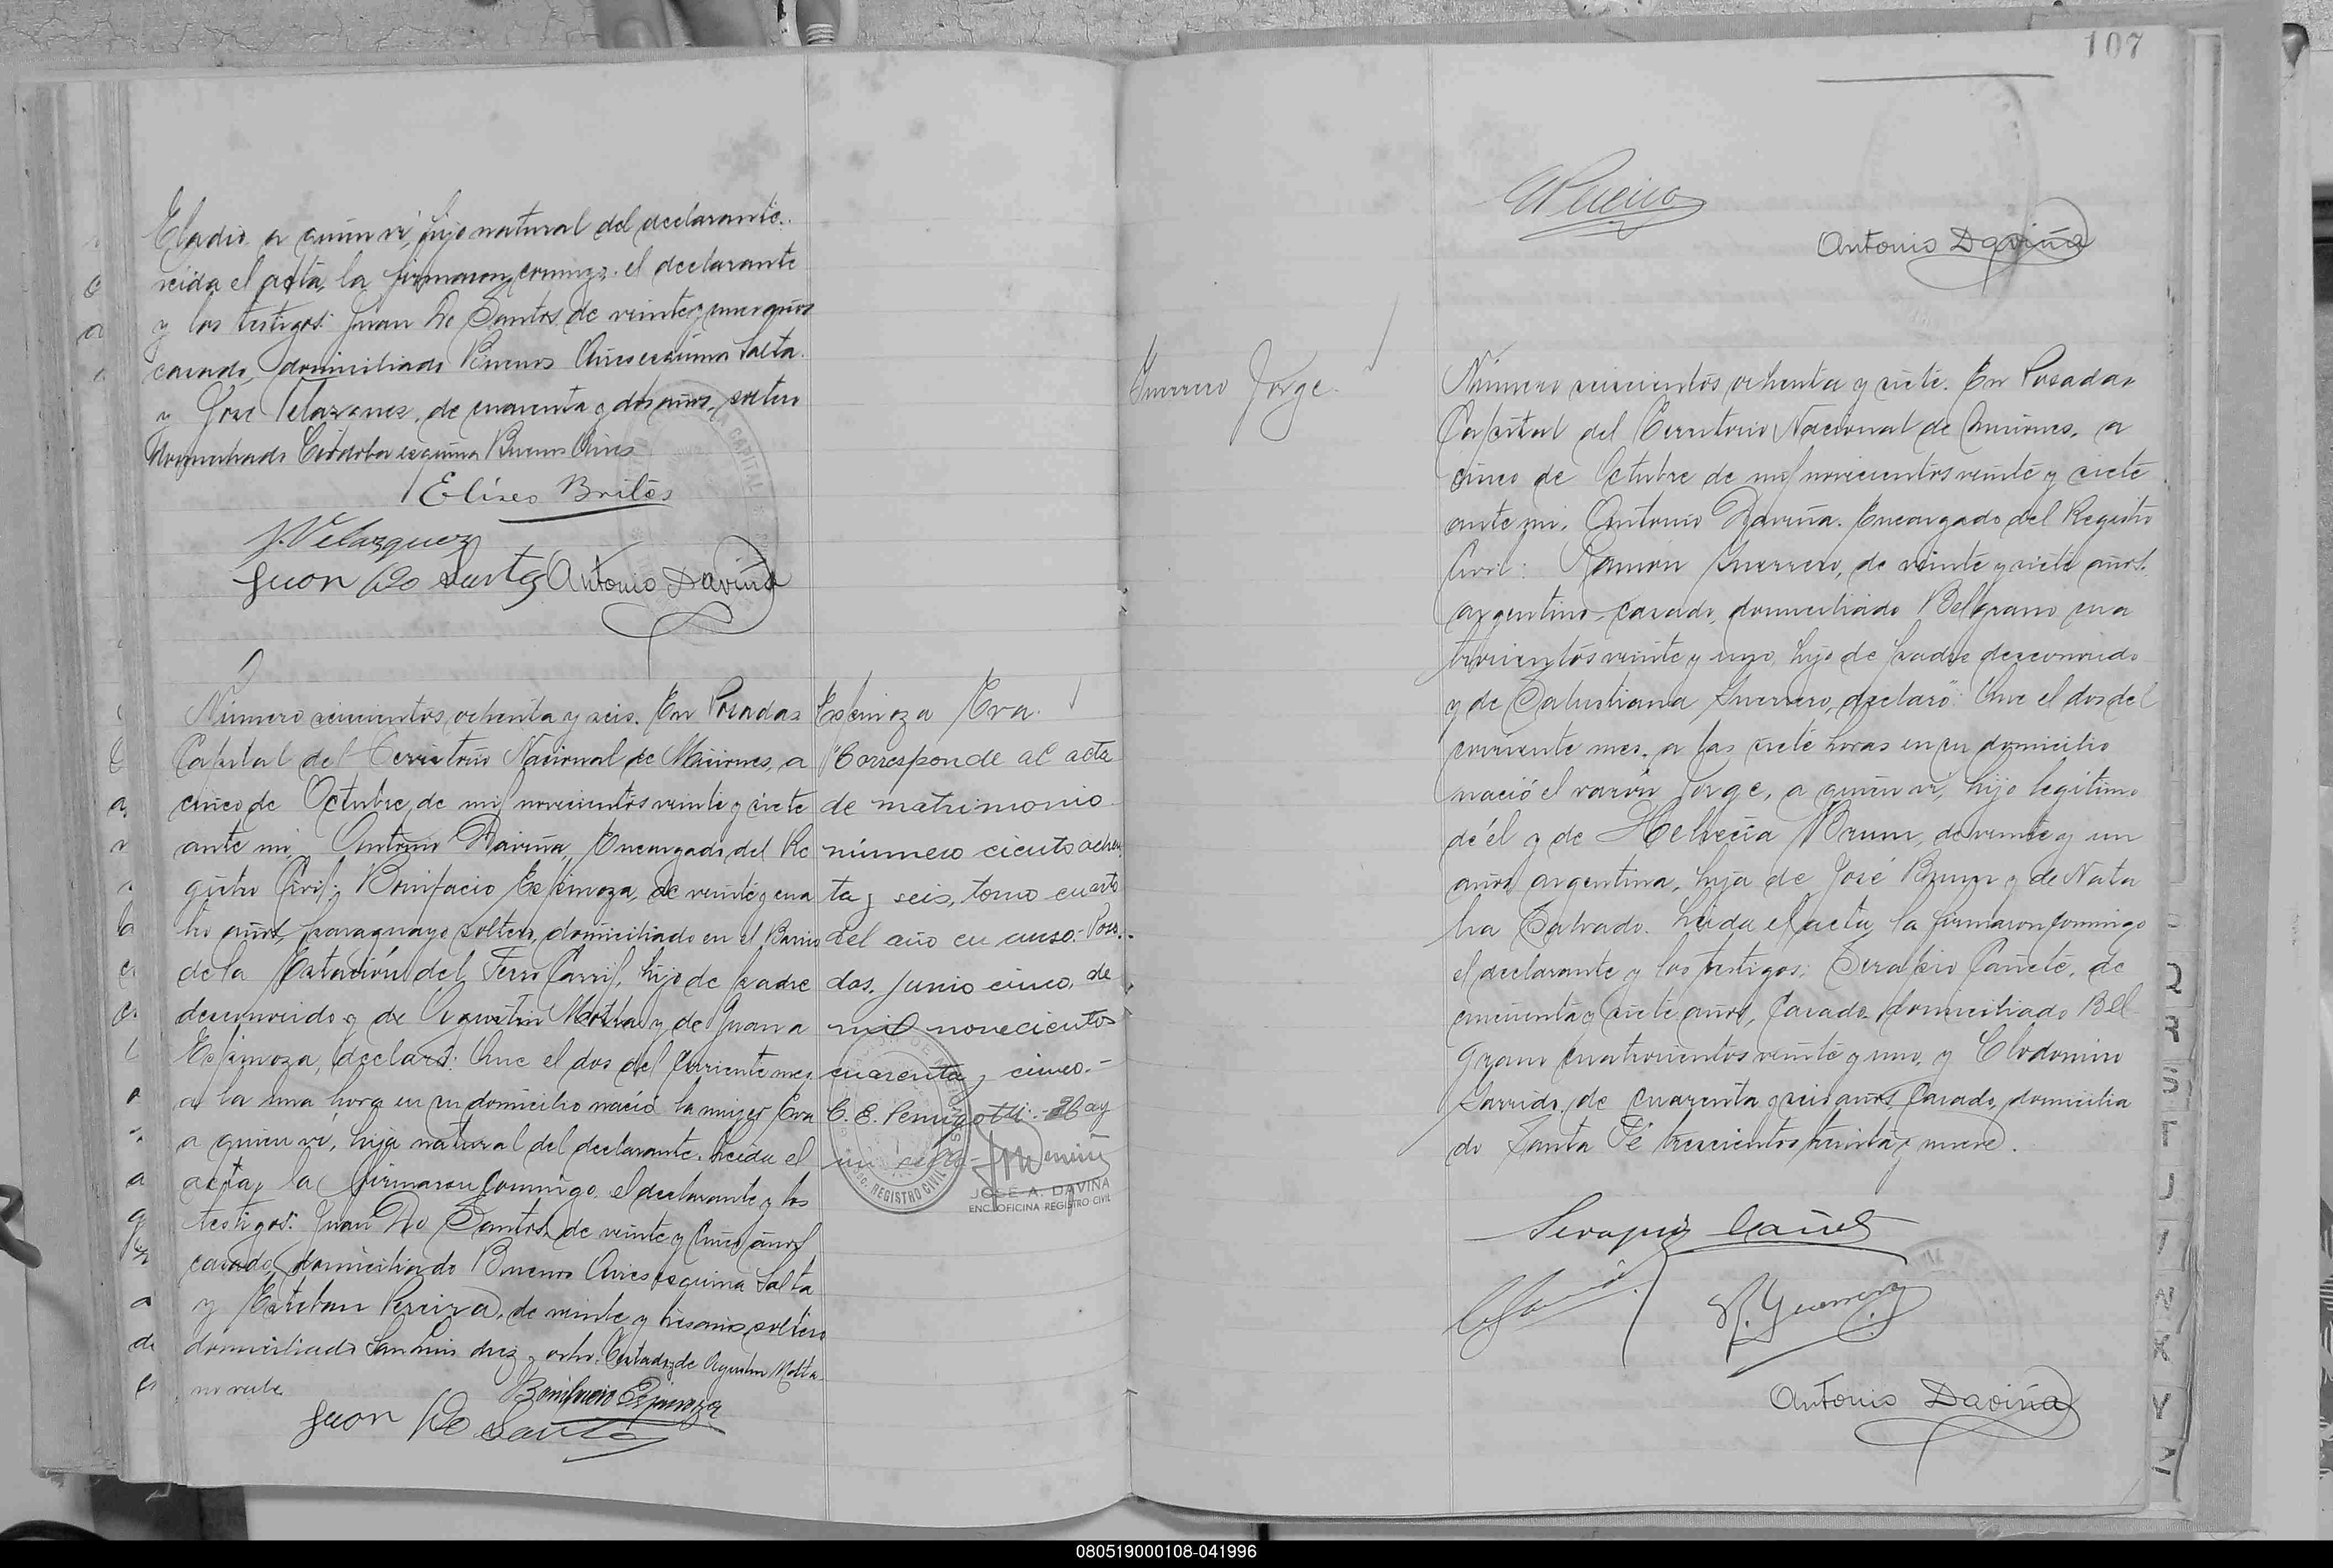 Eladio a quien ví, hijo natural del declarante.
Leída el acta, la firmaron conmigo el declarante
y los testigos: Juan Do Santos de veinte y cinco años
casado, domiciliado Buenos Aires esquina Salta
y José Velazquez, de cuarenta y dos años, soltero
domiciliado Córdoba esquina Buenos Aires
Eliseo Brites
J. Velazquez
Juon Do Santos Antonio Daviña
Número seiscientos ochenta y seis. En Posadas
Capital del Territorio Nacional de Misiones, a
cinco de Octubre de mil novecientos veinte y siete
ante mi, Antonio Daviña, Encargado del Re
gistro Civil; Bonifacio Espinoza, de veinte y cua
tro años, paraguayo soltero, domiciliado en el Barrio
de la Estación del Ferro Carril, hijo de padre
desconocido y de Agustin Motta y de Juana
Espinoza, declaró: Que el dos del corriente mes
a la una hora en su domicilio nació la mujer Eva
a quien ví, hija natural del declarante. Leída el
acta, la firmaron conmigo el declarante y los
testigos: Juan Do Santos, de veinte y cinco años
casado, domiciliado Buenos Aires esquina Salta
y Esteban Pereira, de veinte y tres años, soltero
domiciliado San Luis diez y ocho. Testado: de Agustin Motta
no vale
Bonifacio Espinoza
Juon Do Santos
Espinoza Eva.
"Corresponde al acta
de matrimonio
número ciento ochen
ta y seis, tomo cuarto
del año en curso. Posa
das, junio cinco, de
mil novecientos
cuarenta y cinco.-
C. E. Penzotti.- Hay
un sello-
JOSE A. DAVIÑA
ENC. OFICINA REGISTRO CIVIL
107
Antonio Daviña
Guerrero Jorge
Número seiscientos ochenta y siete. En Posadas
Capital del Territorio Nacional de Misiones, a
cinco de Octubre de mil novecientos veinte y siete
ante mi, Antonio Daviña. Encargado del Registro
Civil: Ramón Guerrero, de veinte y siete años.
argentino, casado, domiciliado Belgrano cua
trocientos veinte y uno, hijo de padre desconocido
y de Salustiana Guerrero, declaró: Que el dos del
corriente mes, a las siete horas en su domicilio
nació el varón Jorge, a quien ví, hijo legítimo
de él y de Helvecia Brum, de veinte y un
años argentina, hija de José Brum y de Nata
lia Salvado. Leída el acta, la firmaron conmigo
el declarante y los testigos: Serapio Cañete, de
cincuenta y siete años, casado domiciliado Bel
grano cuatrocientos veinte y uno, y Clodomiro
Garrido, de cuarenta y seis años, casado, domicilia
do Santa Fé trescientos treinta y nueve.
Serapio Cañete
R. Guerrero
Antonio Daviña
080519000108-041996